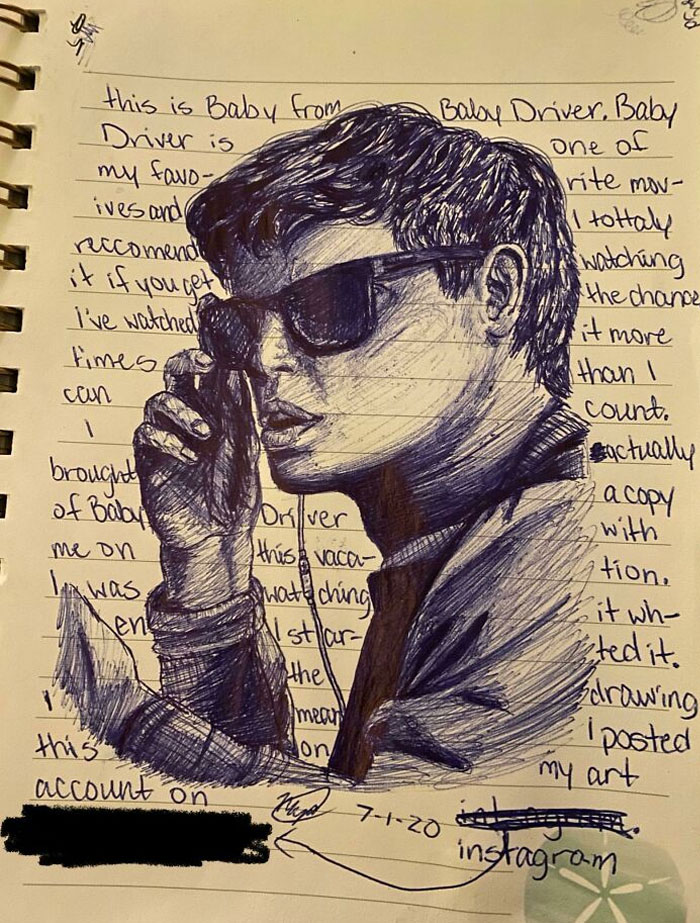 this is Baby from Baby Driver. Baby
Driver is one of
my favo- rite mov-
ives and I tottaly
reccomend watching
it if you get the chance
I've watched it more
times than I
can count.
I actually
brought a copy
of Baby Driver with
me on this vaca- tion.
I was watching it wh-
en I star- ted it.
the drawing
I mean I posted
this on my art
account on 7-1-20 instagram.
instagram